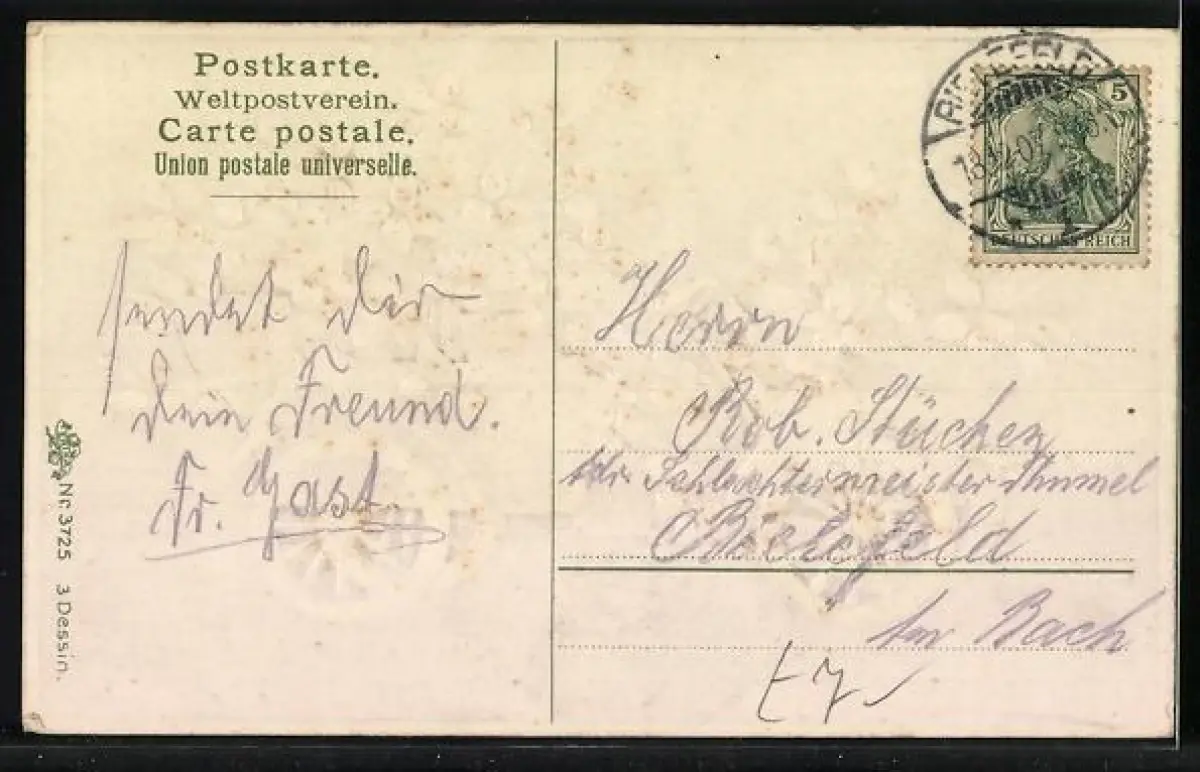 Postkarte.
Weltpostverein.
Carte postale.
Union postale universelle.
sendet dir
dein Freund.
Fr. Gast.
Nr. 3725 3 Dessin.
BIELEFELD
5
DEUTSCHES REICH
Herrn
Rob. Stücher
Schlachtermeister
Bielefeld
Am Bach